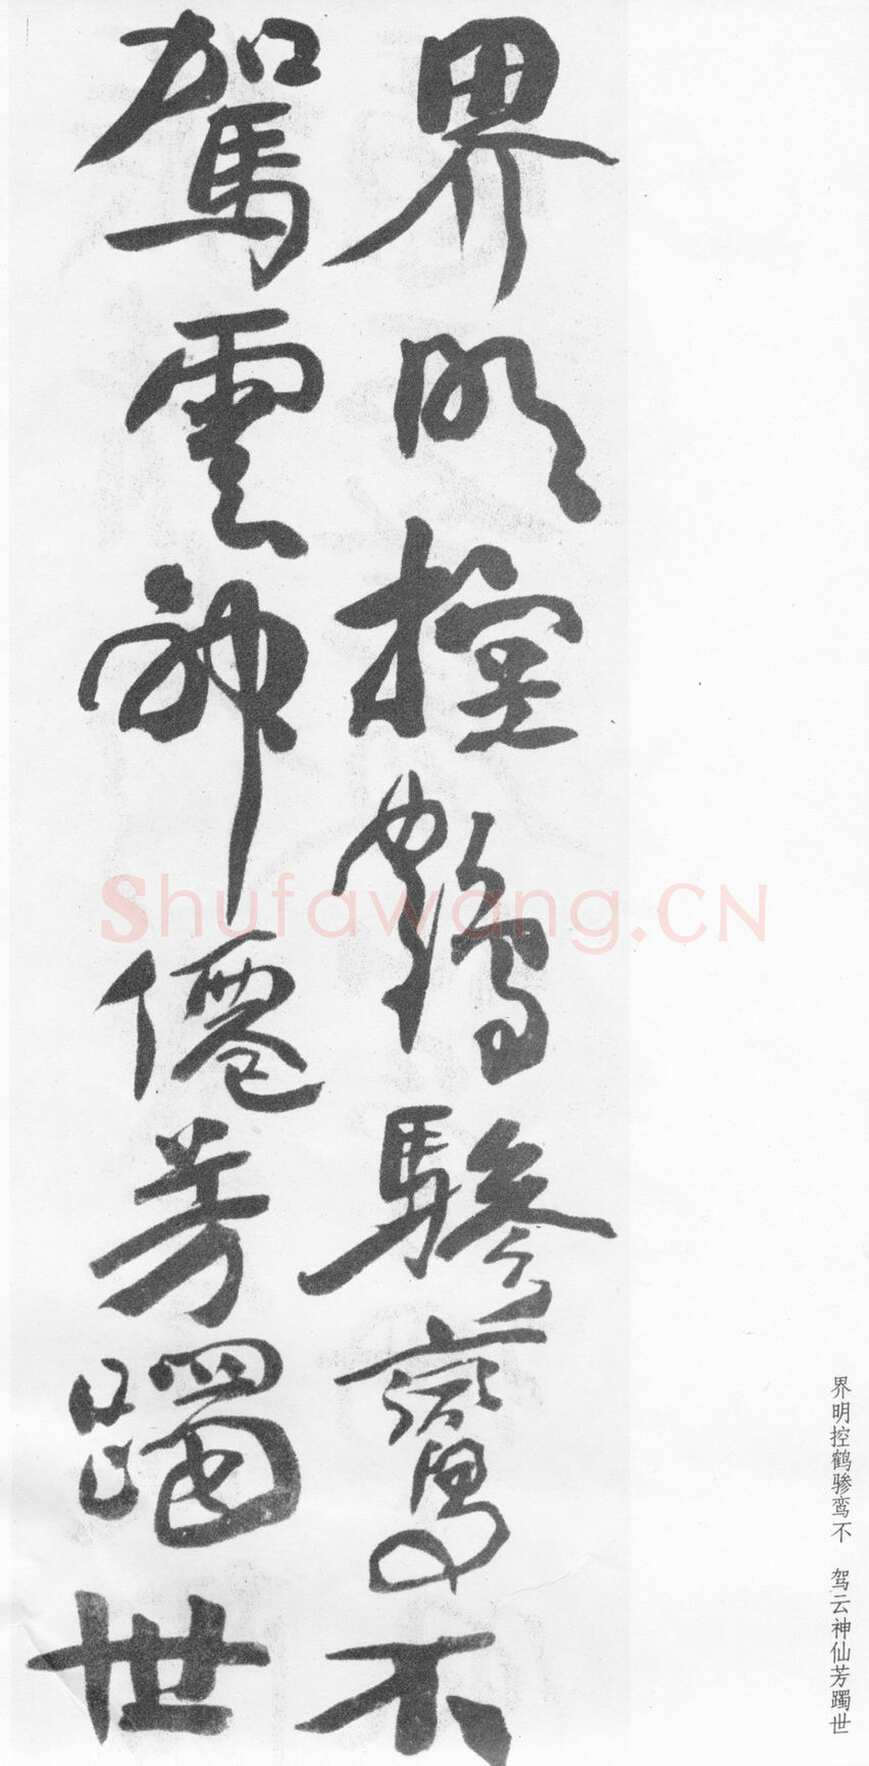 界明控鶴驂鸞不
駕雲神僊芳躅世
界明控鹤骖鸾不 驾云神仙芳躅世
Shufawang.CN